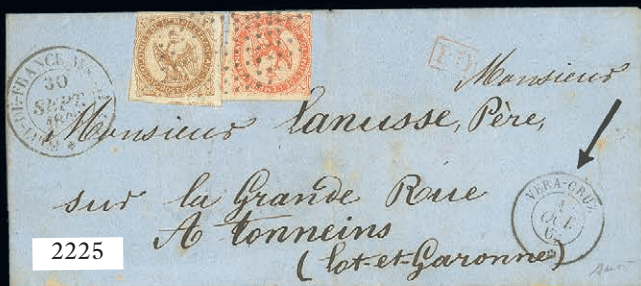 30
SEPT.
Monsieur
Monsieur Lanusse, Père,
sur la Grande Rue
A tonneins
(Lot-et-Garonne)
VERA-CRUZ
OCT.
2225